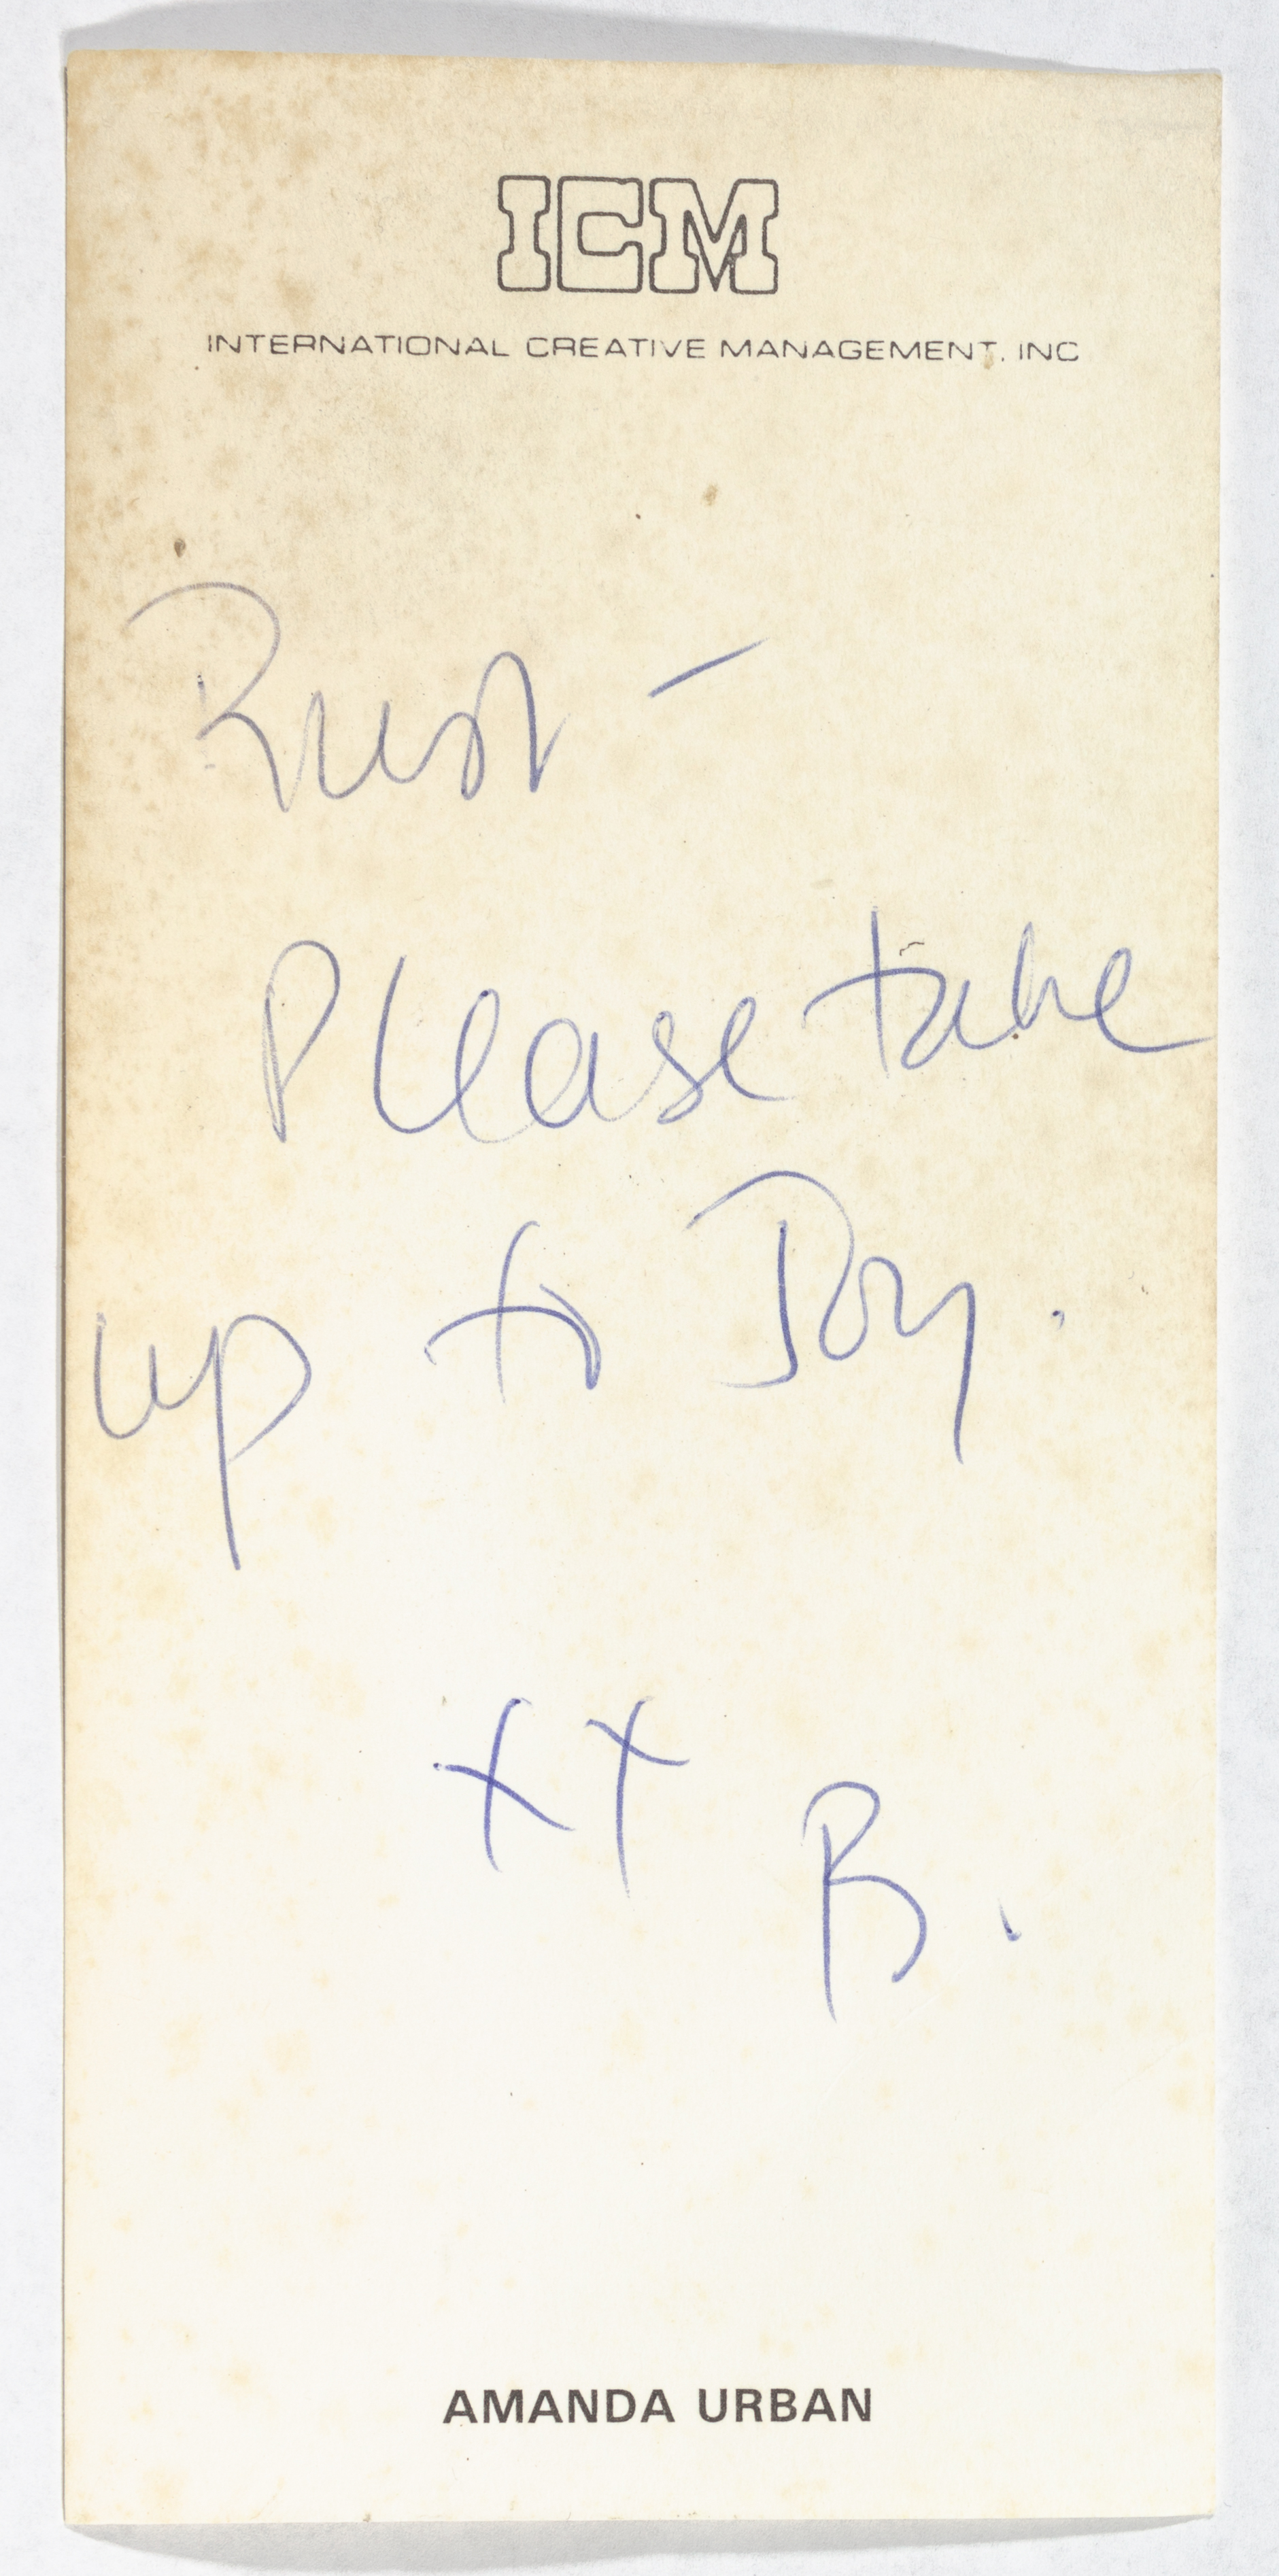 ICM
INTERNATIONAL CREATIVE MANAGEMENT, INC
Rust –
Please take
up to Joy.
XX B.
AMANDA URBAN